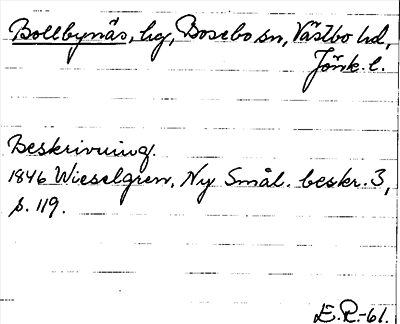 Bollbynäs, hg, Bosebo sn, Västbo hd,
Jönk. l.
Beskrivning.
1846 Wieselgren, Ny Smål. beskr. 3,
s. 119.
E.R.-61.